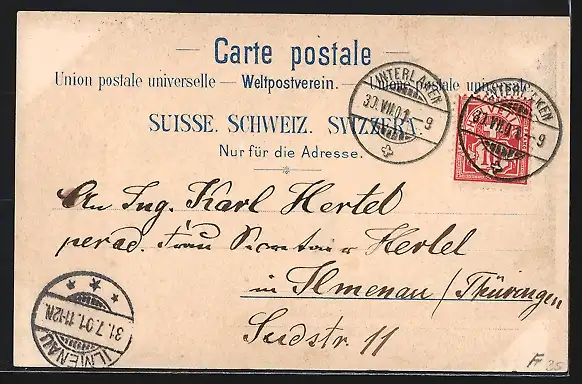 Carte postale
Union postale universelle — Weltpostverein. — Union postale universale
SUISSE. SCHWEIZ. SVIZZERA.
Nur für die Adresse.
INTERLAKEN
30.VII.01.-9
INTERLAKEN
30.VII.01.-9
An Ing. Karl Hertel
per ad. Frau Secretair Hertel
in Ilmenau / Thüringen
Südstr 11
ILMENAU
31.7.01.11-12N.